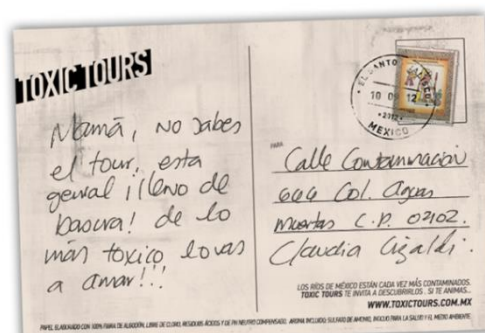 TOXIC TOURS
Mamá, no sabes
el tour, esta
genial ¡lleno de
basura! de lo
más toxico lo vas
a amar!!!
EL SANTO
10 09 12
•2012•
MEXICO
PARA
Calle Contaminación
666 Col. Aguas
Muertas C.P. 02102.
Claudia Lizaldi.
LOS RÍOS DE MÉXICO ESTÁN CADA VEZ MÁS CONTAMINADOS.
TOXIC TOURS TE INVITA A DESCUBRIRLOS. SI TE ANIMAS...
WWW.TOXICTOURS.COM.MX
PAPEL ELABORADO CON 100% FIBRA DE ALGODÓN, LIBRE DE CLORO, RESIDUOS ÁCIDOS Y DE PH NEUTRO COMPENSADO. AROMA INCLUIDO: SULFATO DE AMONIO, INOCUO PARA LA SALUD Y EL MEDIO AMBIENTE.